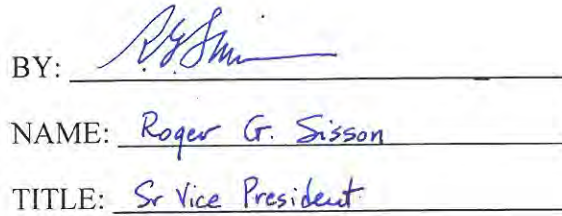 BY:
NAME: Roger G. Sisson
TITLE: Sr Vice President